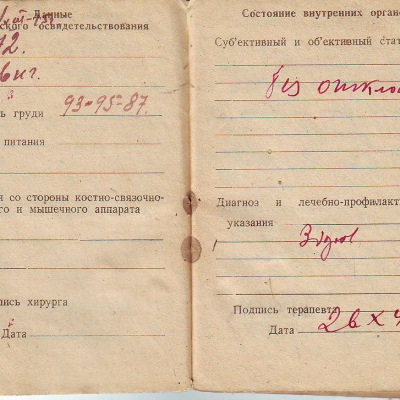 Данные
ского освидетельствования
72.
6 кг.
ь груди 93-95-87.
питания
я со стороны костно-связочно-
го и мышечного аппарата
пись хирурга
Дата
Состояние внутренних орган
Субъективный и объективный стат
без откло
Диагноз и лечебно-профилакт
указания
Здоров
Подпись терапевта
Дата 26 X 4